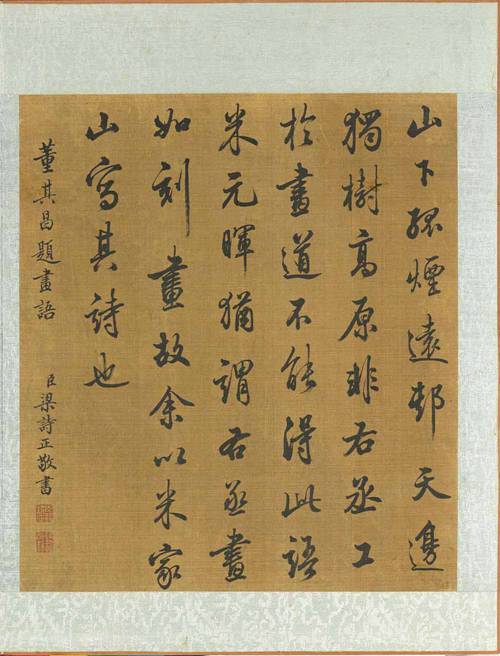 山下孤煙遠邨天邊
獨樹高原非右丞工
於畫道不能得此語
米元暉猶謂右丞畫
如刻畫故余以米家
山寫其詩也
董其昌題畫語
臣梁詩正敬書